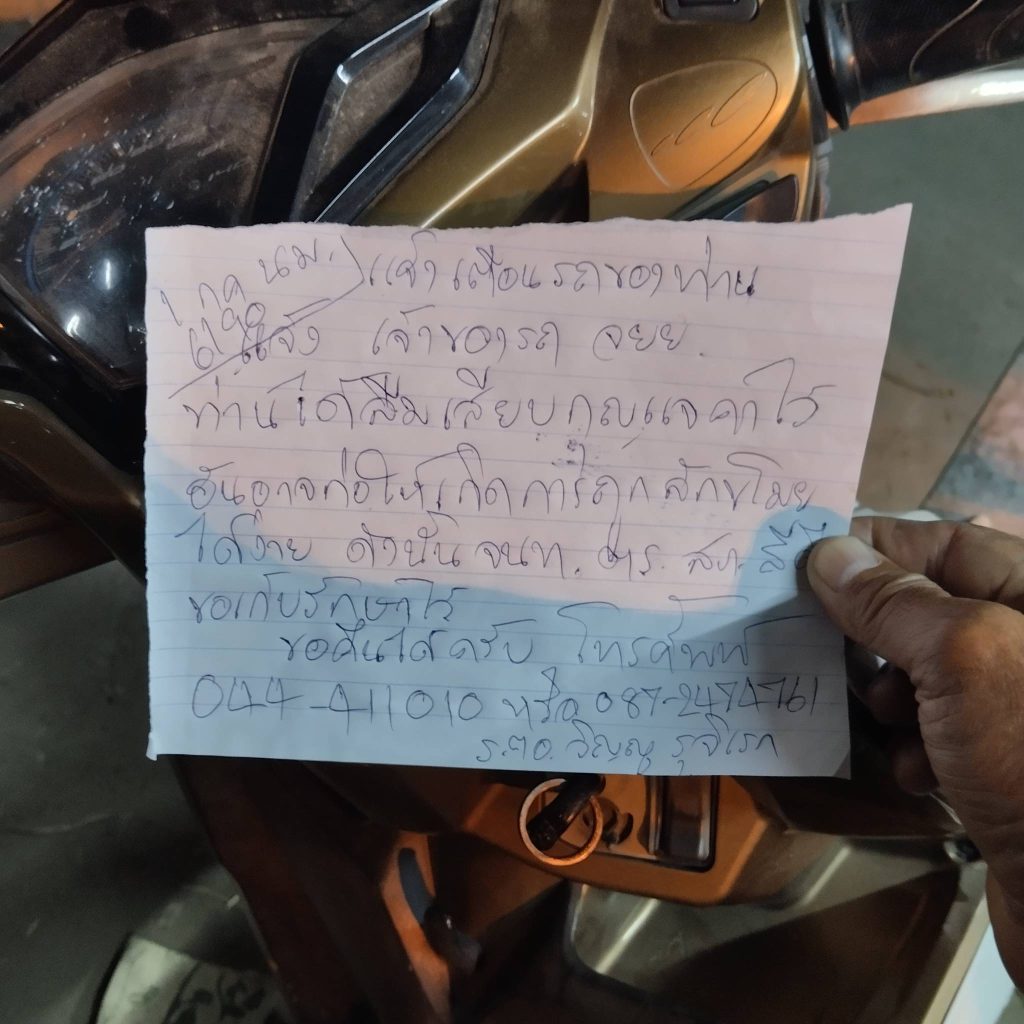 1 กค นม. แจ้งเตือนรถของท่าน
6190
แจ้ง เจ้าของรถ จยย.
ท่านได้ลืมเสียบกุญแจคาไว้
อันอาจก่อให้เกิดการถูกลักขโมย
ได้ง่าย ดังนั้น จนท. ตร. สภ.
ขอเก็บรักษาไว้
ขอคืนได้ครับ โทรศัพท์
044-411010 หรือ 087-2474761
ร.ต.อ. วิญญู รุจิเรก